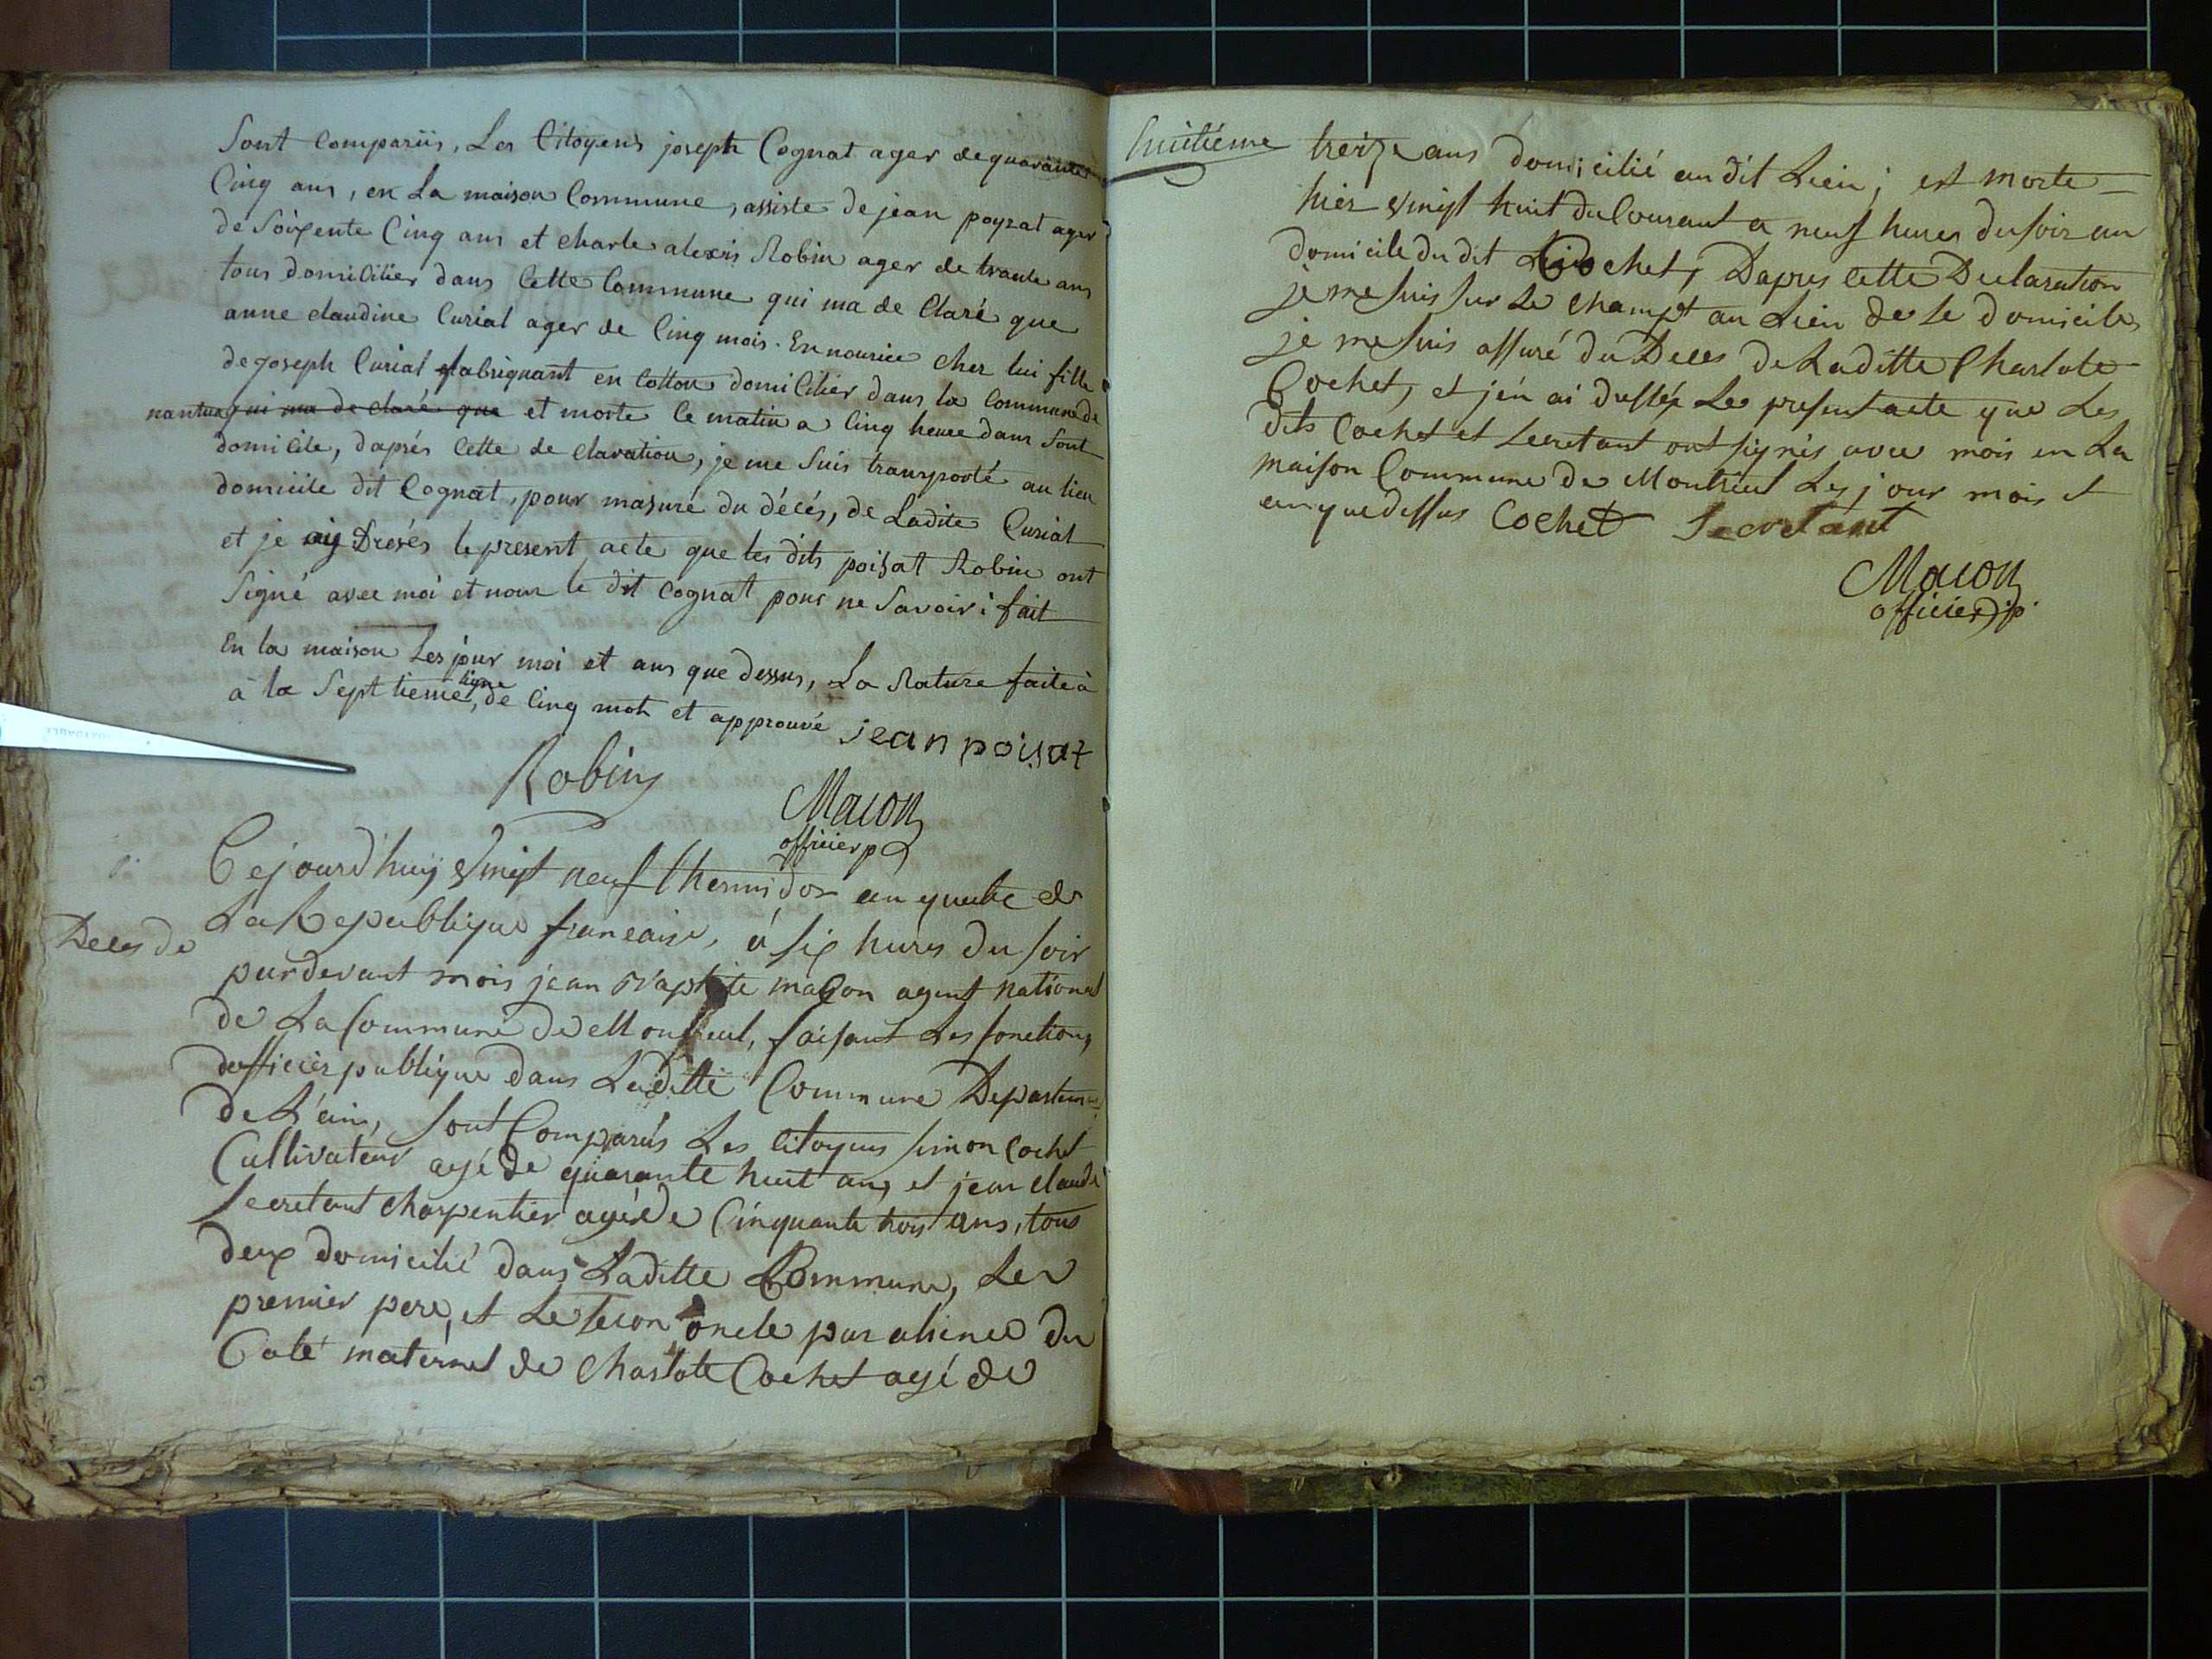 Sont Comparüs, Les Citoyens joseph Cognat ager de quarante
Cinq ans, en La maison Commune, assiste de jean poyzat ager
de Soixente Cinq ans et charle alexis Robin ager de trante ans
tous domicilier dans Cette Commune qui ma de Claré que
anne claudine Curial ager de Cinq mois. En nourice cher lui fille
de joseph Curial fabriquant en Cotton domicilier dans la Commune de
nantua qui ma de claré que et morte le matin a Cinq heure dans Sont
domicile, daprés Cette de claration, je me Suis transporté au lieu
domicile dit Cognat, pour masuré du décés, de Ladite Curial
et je aij Dresés le present acte que les dits poizat Robin ont
Signé avec moi et nom le dit Cognat pour ne Savoir i fait
En la maison Les jour moi et ans que dessus, La Rature faite à
à la Septtieme ligne, de Cinq mot et approuvé jean poisat
Robin
Macon
officier p
Cejourd'huij vingt neuf thermidor an quatre de
La Republique francaise, á six hures du soir
Deces de
pardevant mois jean Baptiste maCon agent national
de La Commune de Montreul, faisant Les fonctions
dofficier publique dans Laditte Commune Departem
de L'ain, sont Comparús Les Citoyens simon Cochet
Cultivateur agé de quarante huit ans et jean claude
Secretant charpentier agé de Cinquante trois ans, tous
deux domicilié dans Laditte Commune, Le
premier pere, et Le secon oncle par aliance du
Coté maternel de Charlote Cochet agé de
huitiéme
treize ans domicilié au dit Lieu; est morte
hier vingt huit du Courant a neuf heures du soir au
domicile du dit Cochet, Dapres Cette Declaration
je me suis sur Le champt au Lieu de Le domicile,
je me suis assuré du Deces de Laditte Charlote
Cochet, et j'en ai dressé Le present acte que Les
dits Cochet et Secretant ont signés avec mois en La
maison Commune de Montreul Les jour mois et
an que dessus Cochet Secretant
Macon
officier p.